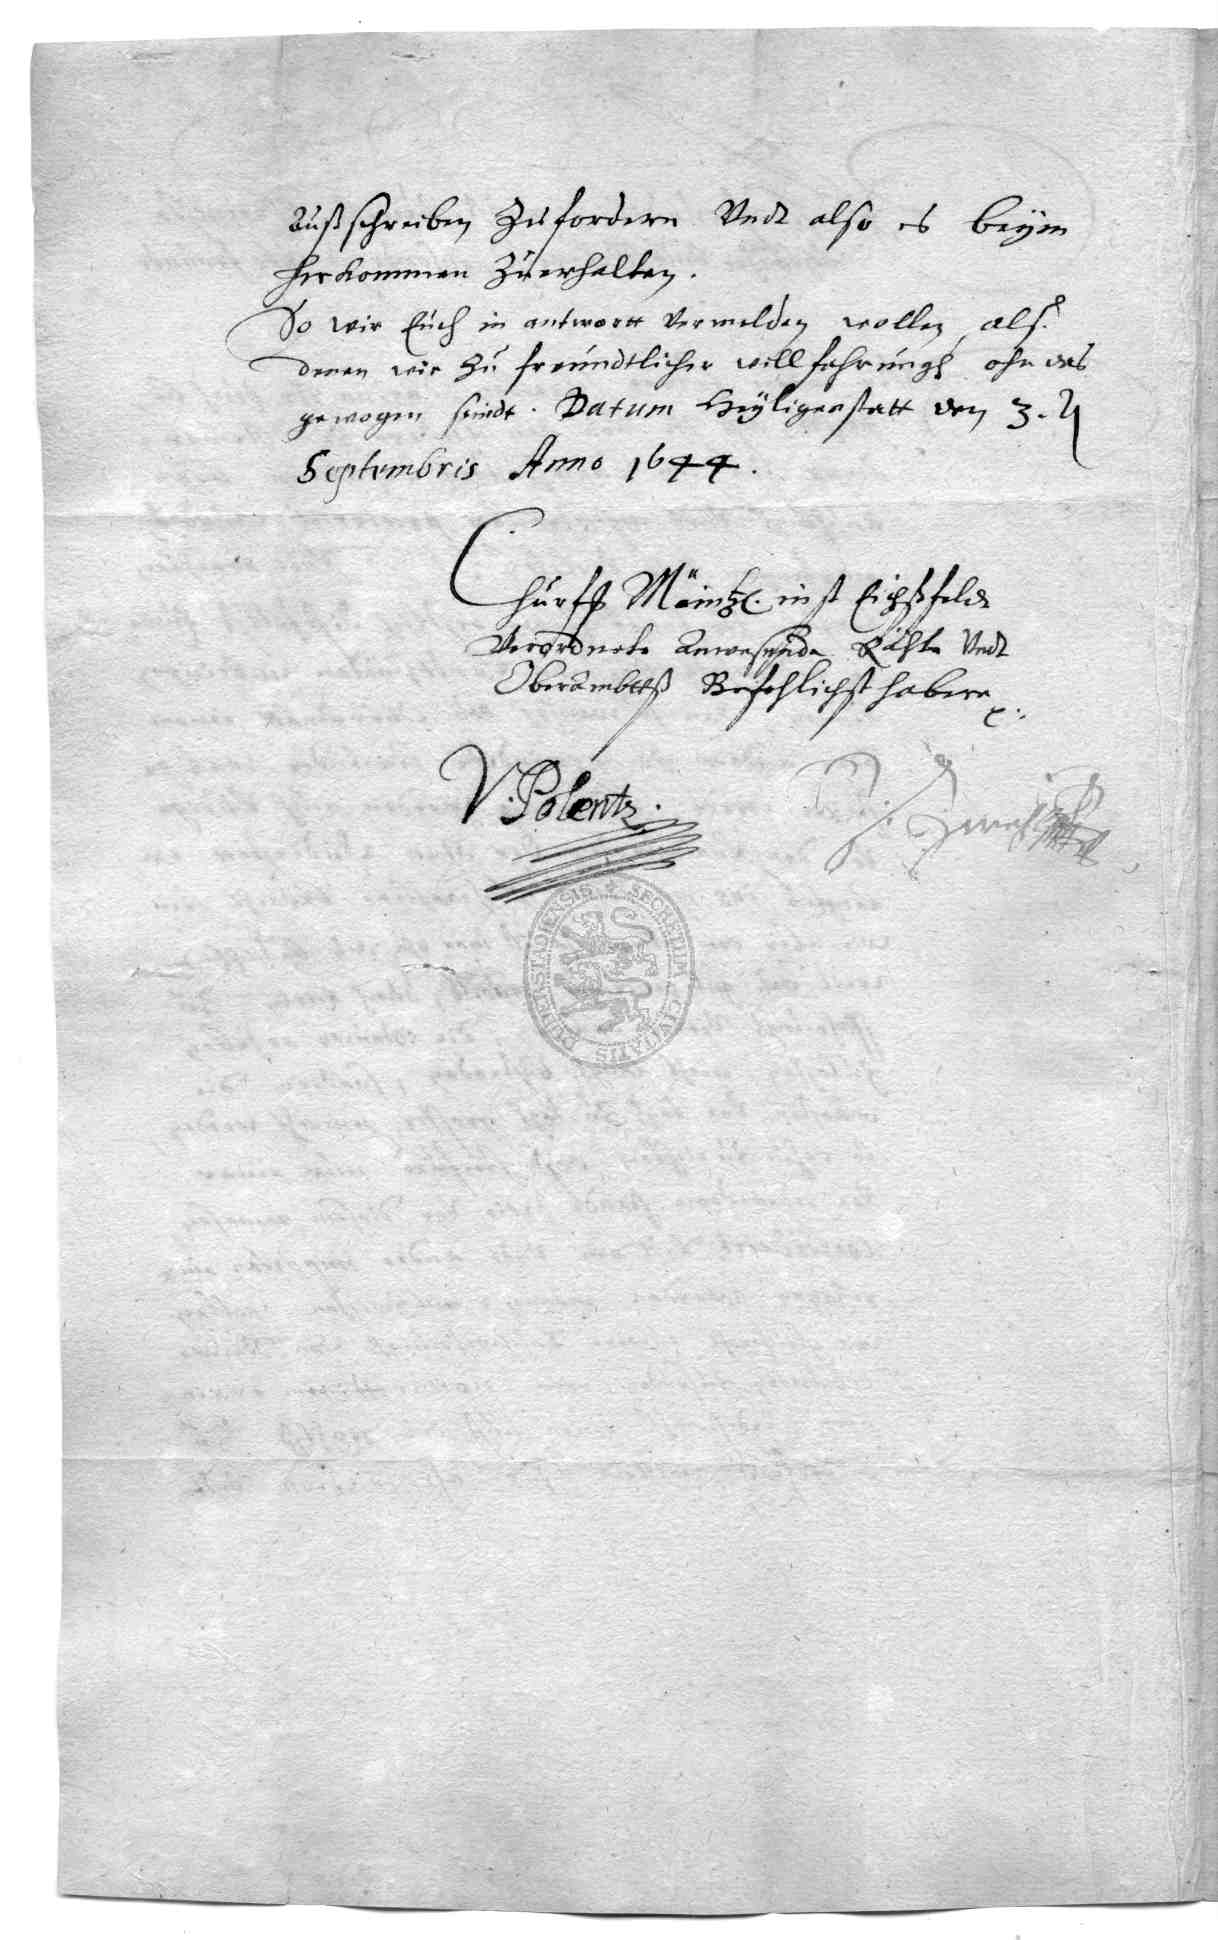 Außschreiben Zufordern Undt also es beÿm
herkommen Zuerhalten.
So wir Euch in antwortt Vermelden wollen, alß
denen wir Zu freundtlicher willfahrungh ohn das
gewogen seindt. Datum Heÿligenstatt den 3.
Septembris Anno 1644.
Churfß Mäintz. inß Eichßfeldt
Verordnete Anwesende Räthe Undt
Oberambtß Befehlichßhabere
V. Polentz.
SECRETUM CIVITATIS DUDERSTADIENSIS